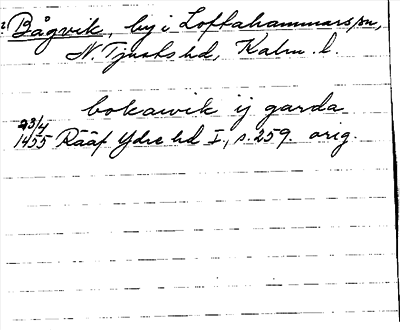 Bågvik, by i Loftahammars sn,
N. Tjusts hd, Kalm. l.
bokawik ij garda
23/4
1455 Rääf Ydre hd I, s. 259. orig.